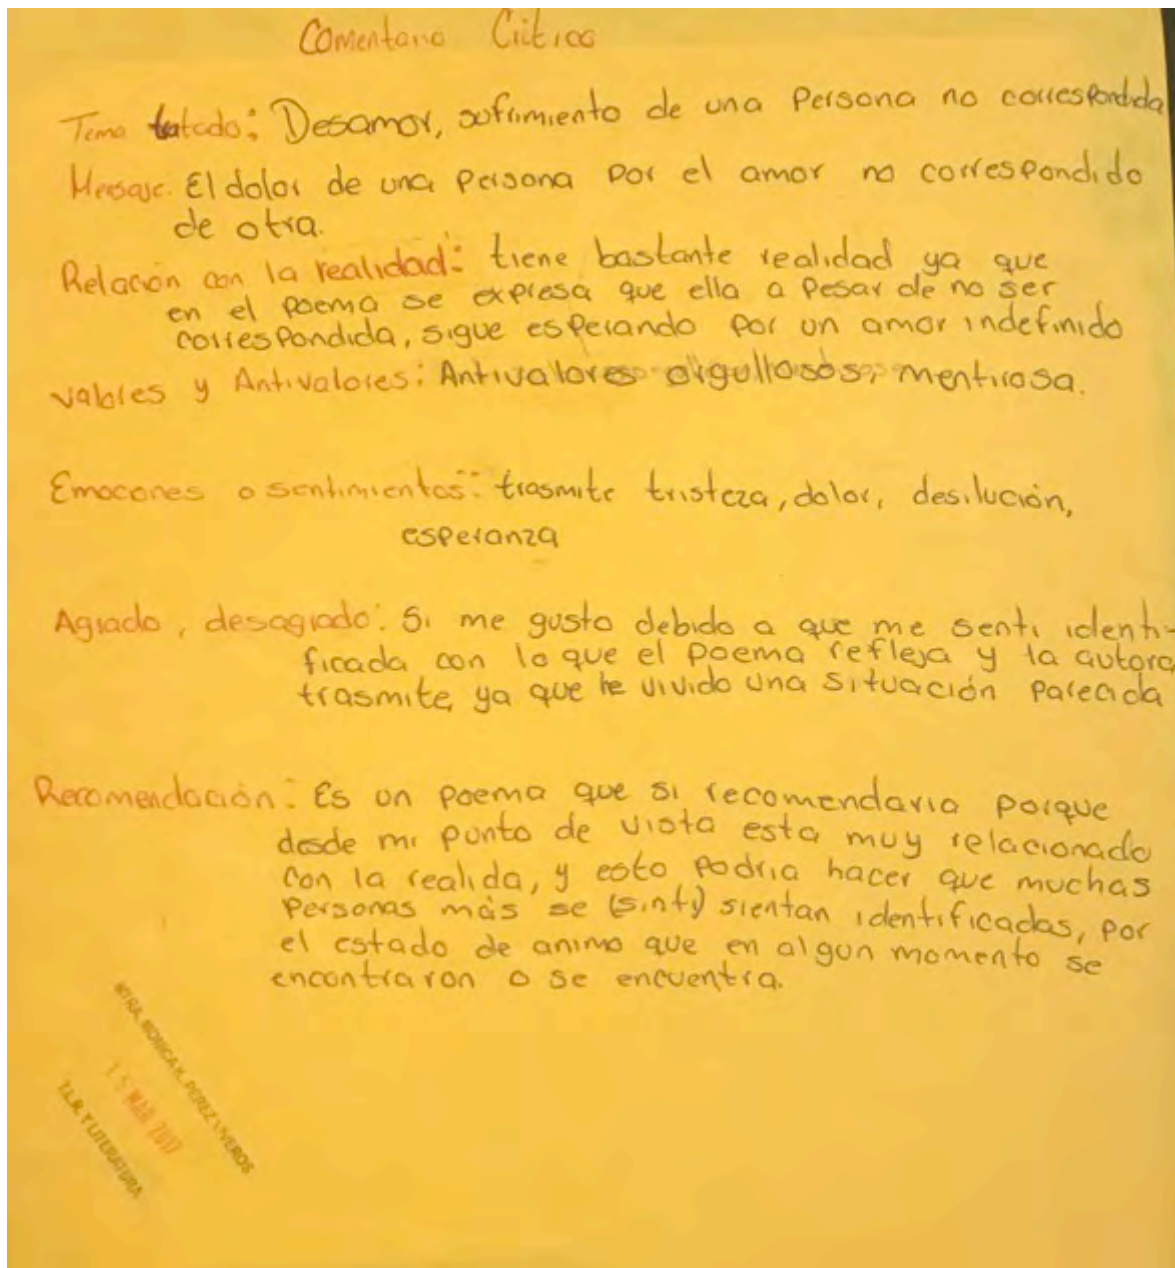 Comentario Critico
Tema tratado: Desamor, sufrimiento de una Persona no correspondida
Mensaje: El dolor de una Persona por el amor no correspondido
de otra.
Relación con la realidad: tiene bastante realidad ya que
en el poema se expresa que ella a pesar de no ser
correspondida, sigue esperando por un amor indefinido
valores y Antivalores: Antivalores orgullosos, mentirosa.
Emocones o sentimientos: trasmite tristeza, dolor, desilución,
esperanza
Agrado, desagrado: Si me gusto debido a que me senti identi-
ficada con lo que el poema refleja y la autora
trasmite, ya que he vivido una situación parecida
Recomendación: Es un poema que si recomendaria porque
desde mi punto de vista esta muy relacionado
con la realida, y esto podria hacer que muchas
Personas más se (sinti) sientan identificadas, por
el estado de animo que en algun momento se
encontraron o se encuentra.
MTRA. MONICA K. PEREZ VIVEROS
15 MAR 2017
T.L.R. Y LITERATURA